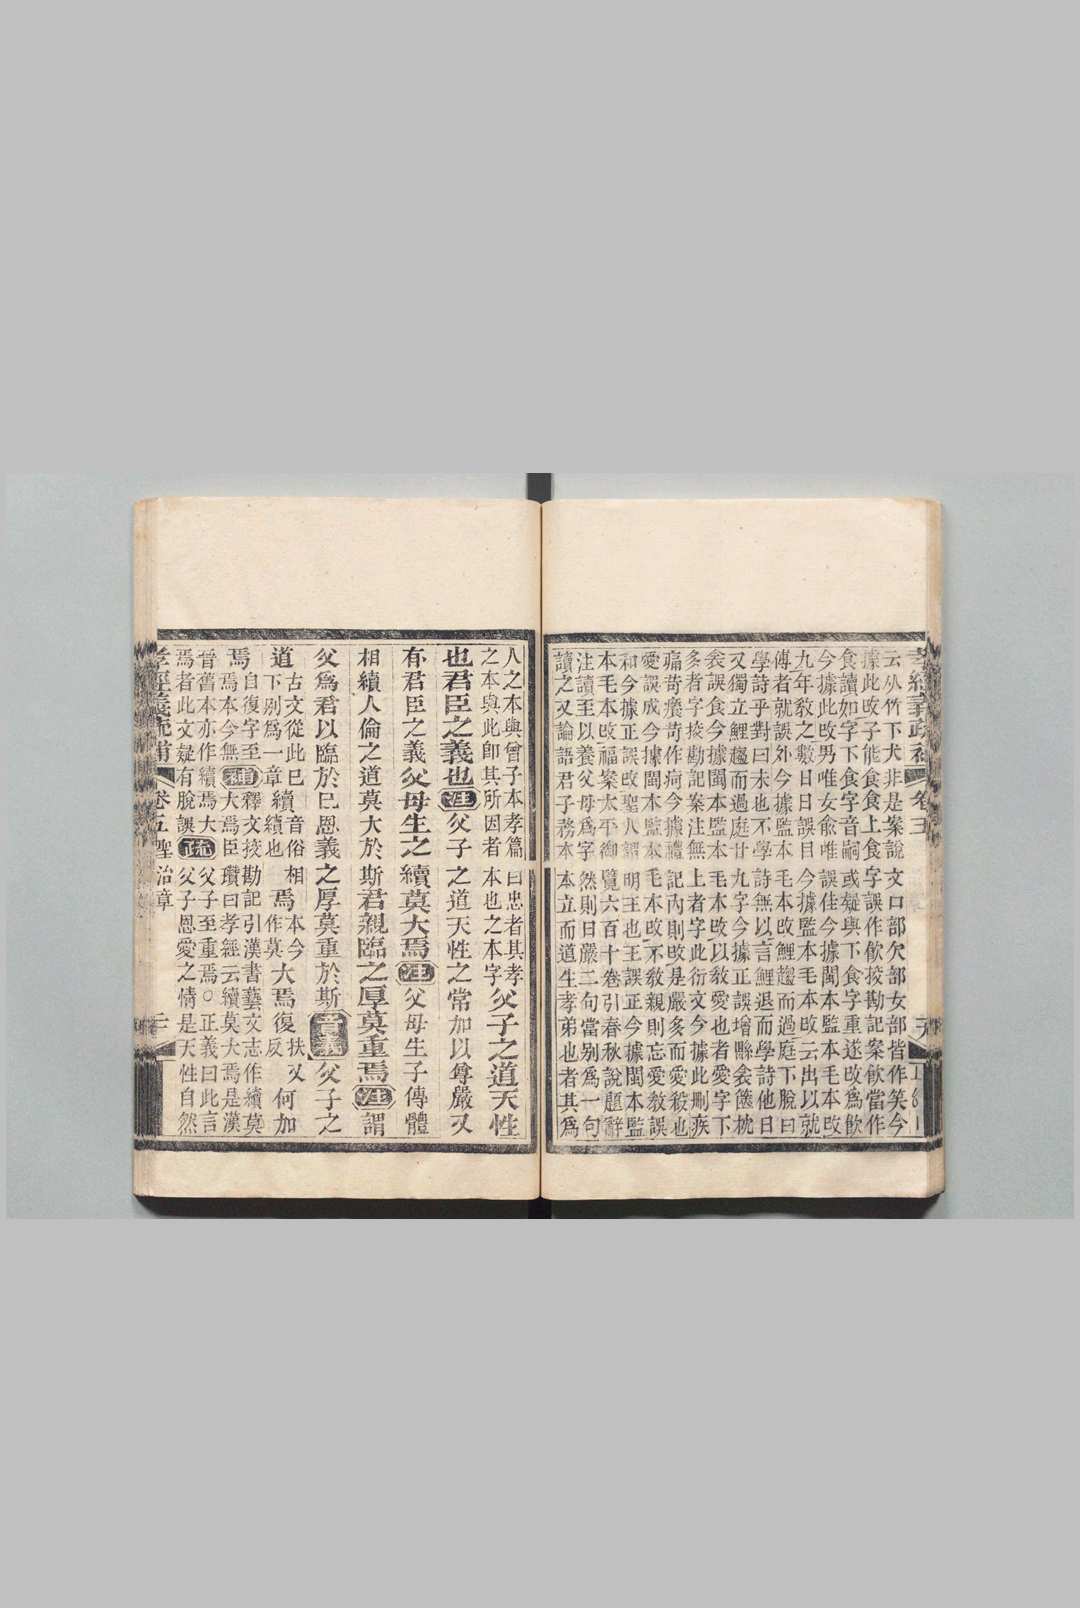 孝經義疏補 卷五
云从竹下犬非是案說文口部欠部女部皆作笑今
據此改子能食食上食字誤作飮挍勘記案飮當作
食讀如字下食字音嗣或疑與下食字重遂改爲飮
今據此改男唯女兪唯誤佳今據閩本監本毛本改
九年敎之數日日誤目今據監本毛本改云出以就
傅者就誤外今據監本毛本改鯉趨而過庭下脫曰
學詩乎對曰未也不學詩無以言鯉退而學詩他日
又獨立鯉趨而過庭廿九字今據正誤增縣衾篋枕
衾誤食今據閩本監本毛本改以敎愛也者愛字下
多者字挍勘記案注無上者字此衍文今據此刪疾
痛苛癢苛作疴今據禮記內則改是嚴多而愛殺也
愛誤成今據閩本監本毛本改不敎親則忘愛敎誤
和今據正誤改聖人謂明王也王誤正今據閩本監
本毛本改福案太平御覽六百十卷引春秋說題辭
注讀至以養父母爲字然則日嚴二句當別爲一句
讀之又論語君子務本本立而道生孝弟也者其爲
人之本與曾子本孝篇曰忠者其孝
之本與此卽其所因者本也之本字
父子之道天性
也君臣之義也注父子之道天性之常加以尊嚴又
有君臣之義父母生之續莫大焉注父母生子傳體
相續人倫之道莫大於斯君親臨之厚莫重焉注謂
父爲君以臨於己恩義之厚莫重於斯音義父子之
道古文從此已下別爲一章續音俗相續也焉本今作莫大焉復扶又反何加
焉自復字至焉本今無補釋文挍勘記引漢書藝文志作續莫
大焉臣瓚曰孝經云續莫大焉是漢
晉舊本亦作續焉大
焉者此文疑有脫誤
疏父子至重焉○正義曰此言
父子恩愛之情是天性自然
孝經義疏補 卷五 聖治章 二